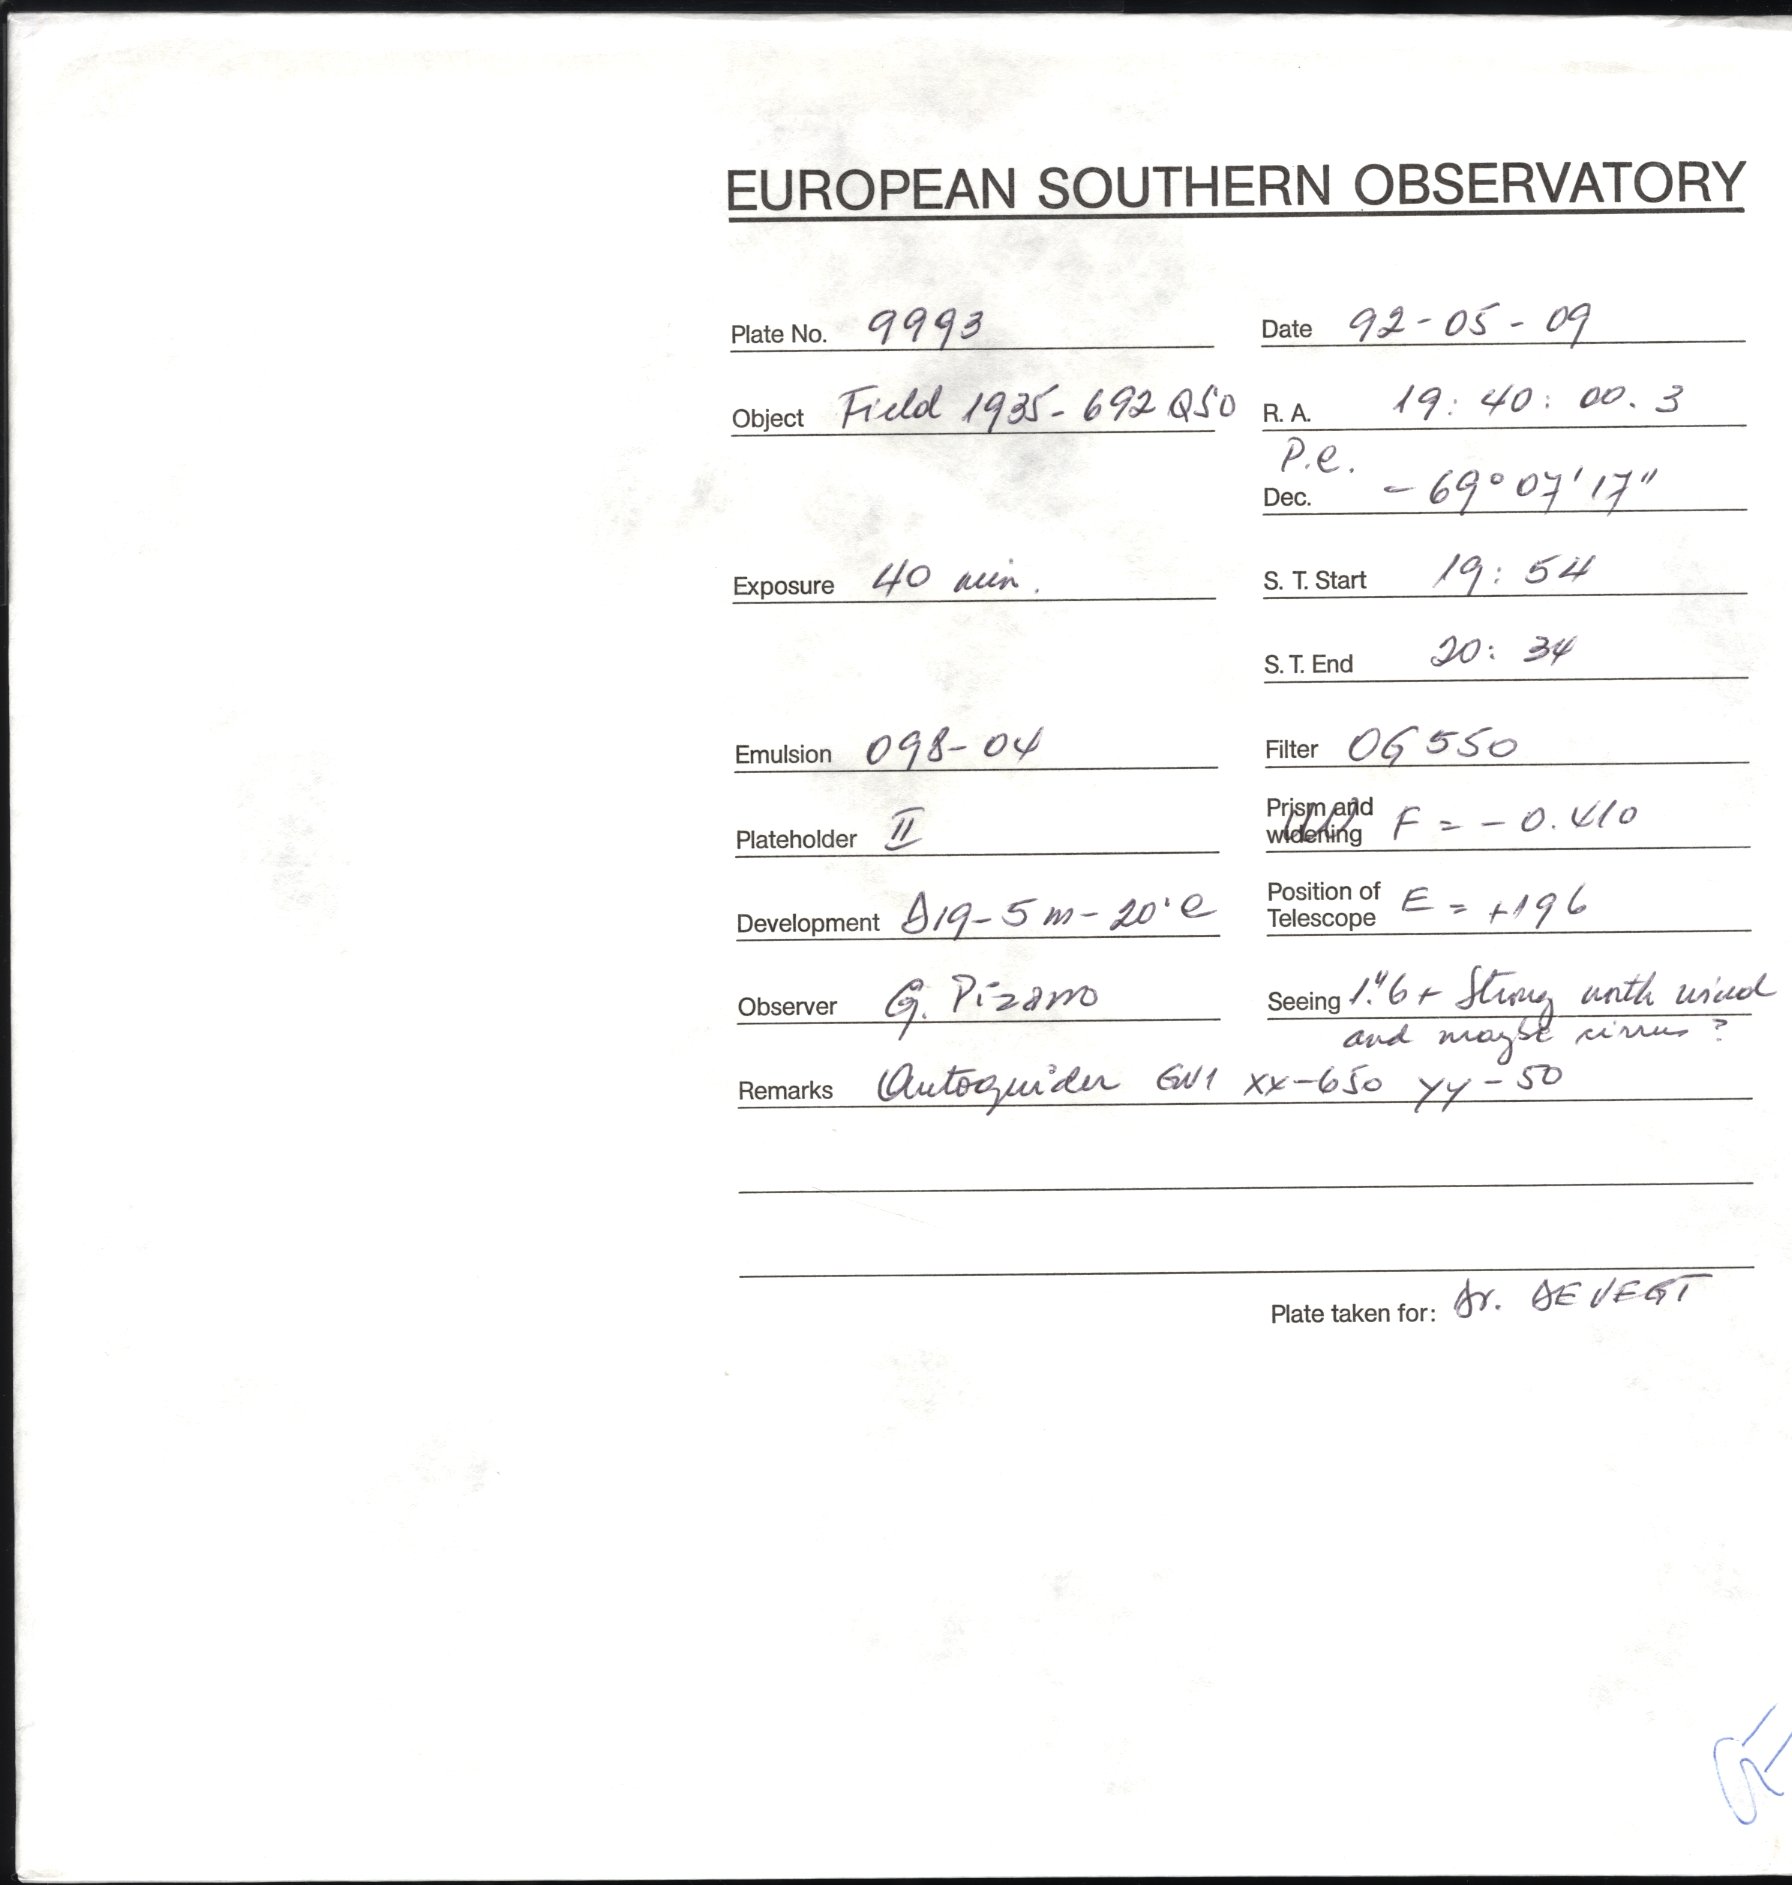 EUROPEAN SOUTHERN OBSERVATORY
Plate No. 9993 Date 92-05-09
Object Field 1935-692 QSO R. A. 19: 40: 00.3
P.e.
Dec. -69°07'17"
Exposure 40 min. S. T. Start 19: 54
S. T. End 20: 34
Emulsion 098-04 Filter OG 550
Plateholder II Prism and widening F = -0.410
Development D19-5m-20°C Position of Telescope E = +196
Observer G. Pizarro Seeing 1."6 + Strong north wind
and maybe cirrus ?
Remarks Autoguider GW1 xx-650 yy-50
Plate taken for: Dr. DE VEGT